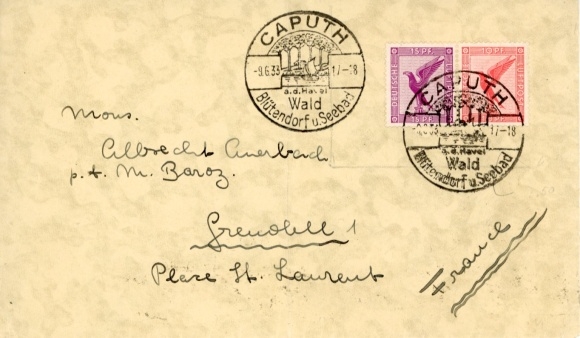 CAPUTH
-9.6.33 17-18
a.d.Havel
Wald
Blütendorf u. Seebad
15 PF.
DEUTSCHE
15 PF.
10 PF.
CAPUTH
17-18
a.d.Havel
Wald
Blütendorf u. Seebad
Mons.
Albrecht Auerbach
p.A. M. Baroz.
Grenobell 1
Place St. Laurent
France